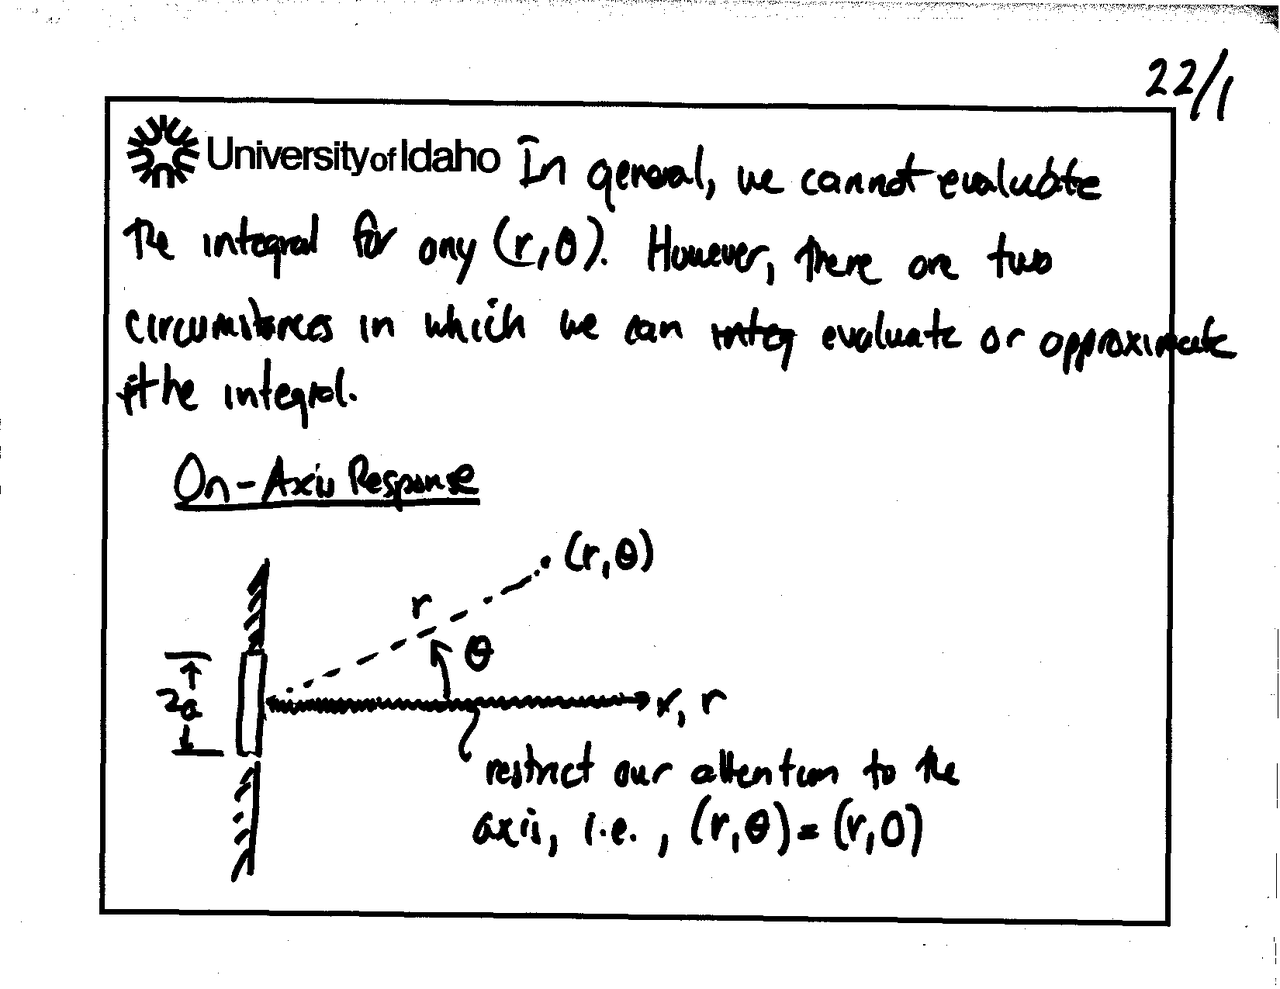 22/1
University of Idaho In general, we cannot evaluate
the integral for any (r,θ). However, there are two
circumstances in which we can integ evaluate or approximate
the integral.
On-Axis Response
(r,θ)
r
θ
2a
x, r
restrict our attention to the
axis, i.e., (r,θ) = (r,0)